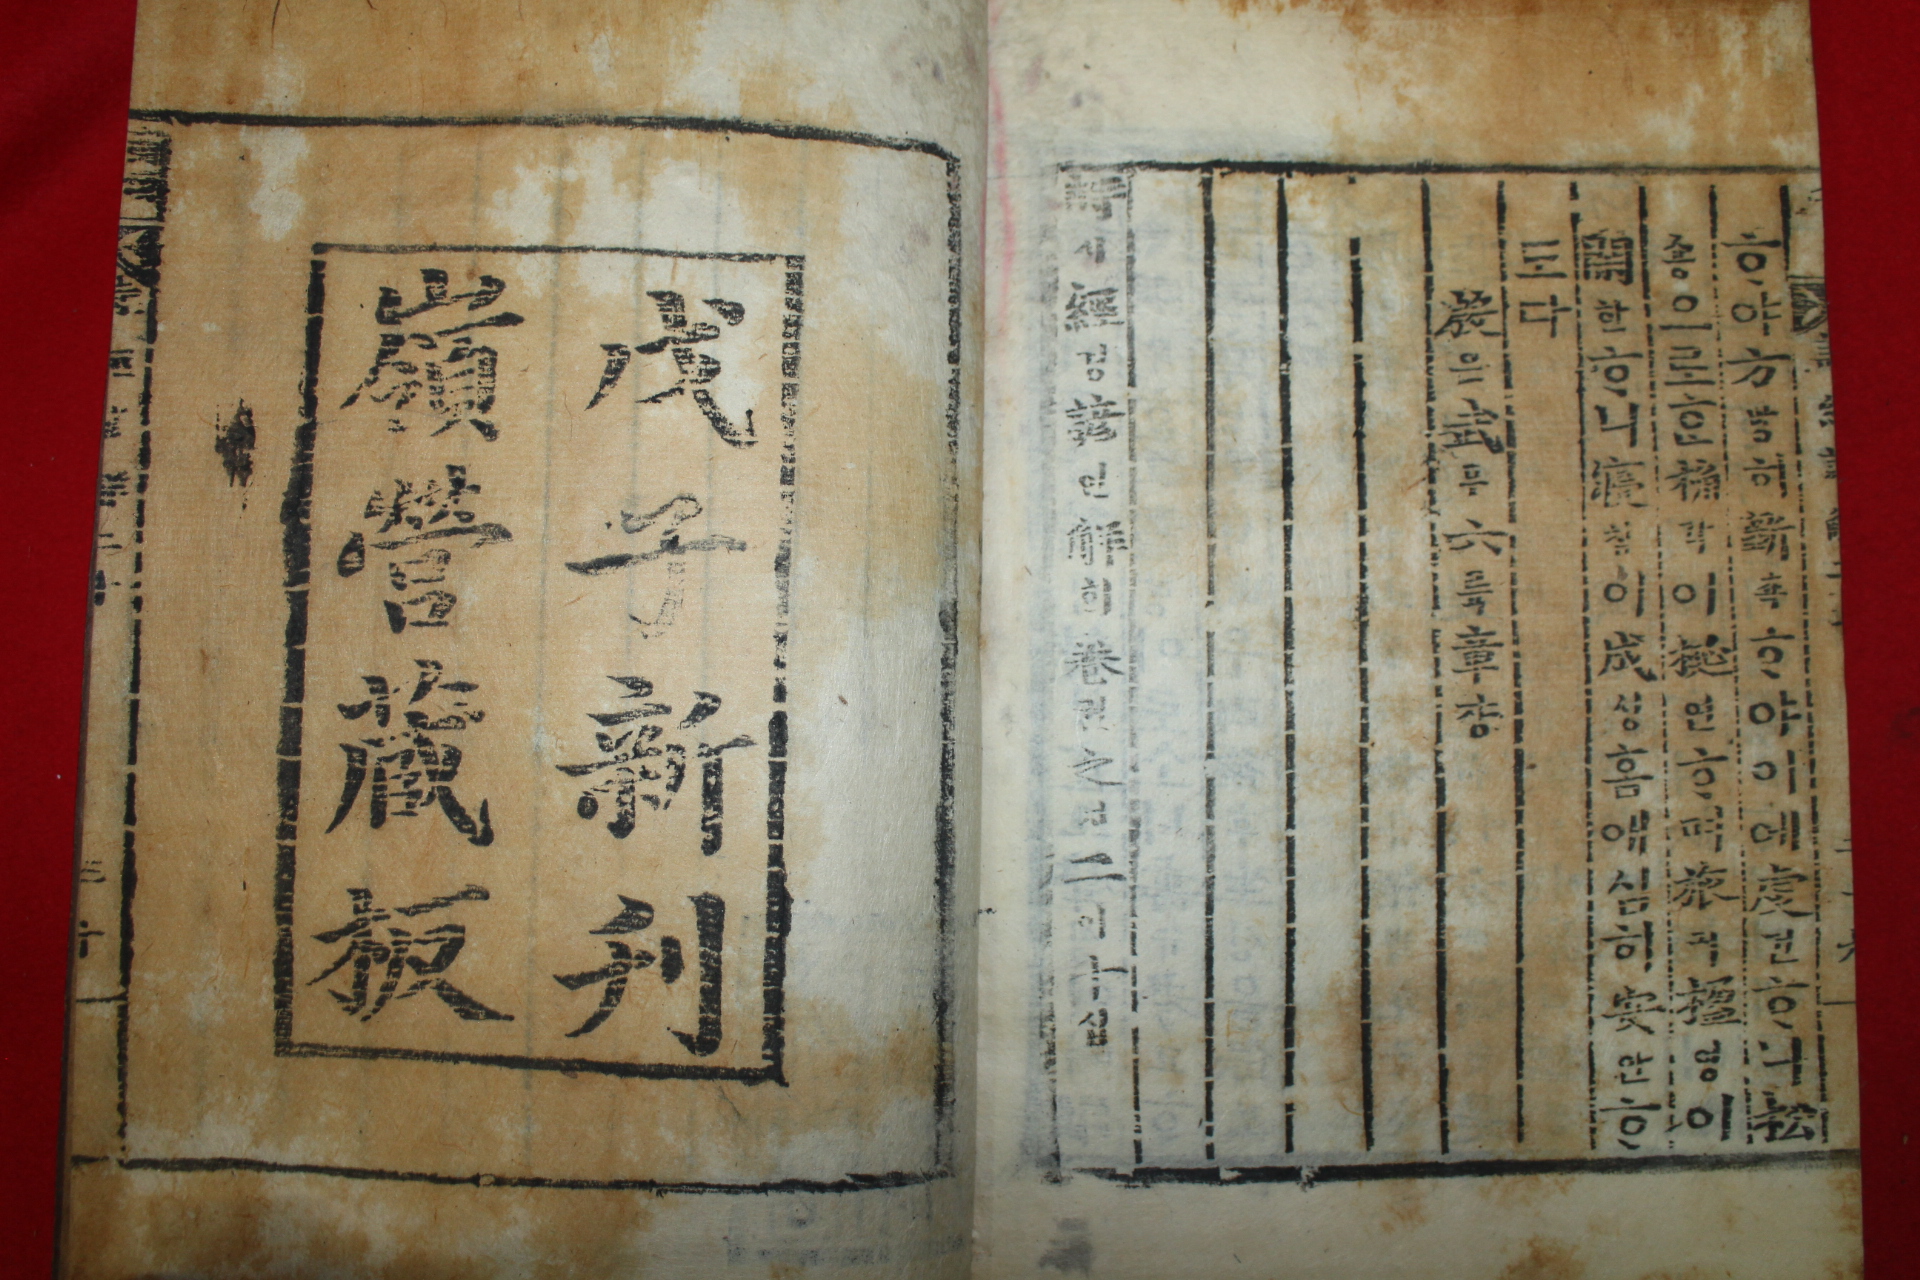 ᄒᆞ야方방히斲착ᄒᆞ야이에虔건ᄒᆞ니松
숑으로ᄒᆞᆫ桷각이梴연ᄒᆞ며旅려楹영이
閑한ᄒᆞ니寢침이成셩ᄒᆞ매심히安안ᄒᆞ
도다
殷은武무六륙章쟝
詩시經경諺언解ᄒᆡ卷권之지二이十십
戊子新刊
嶺營藏板